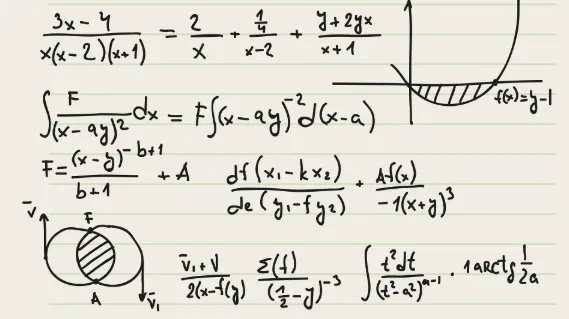 (3x - 4)/(x(x-2)(x+1)) = 2/x + (1/4)/(x-2) + (y+2yx)/(x+1)
f(x)=y-1
∫ F/(x-ay)² dx = F∫(x-ay)⁻² d(x-a)
F = (x-y)^(-b+1)/(b+1) + A    df(x₁-kx₂)/de(y₁-fy₂) + Af(x)/(-1(x+y)³)
v̄ F
A v̄₁
(v̄₁+v)/(2(x-f(y)) Σ(f)/(1/2-y)⁻³ ∫ t²dt/(t²-a²)^(a-1) · 1arctg 1/2a